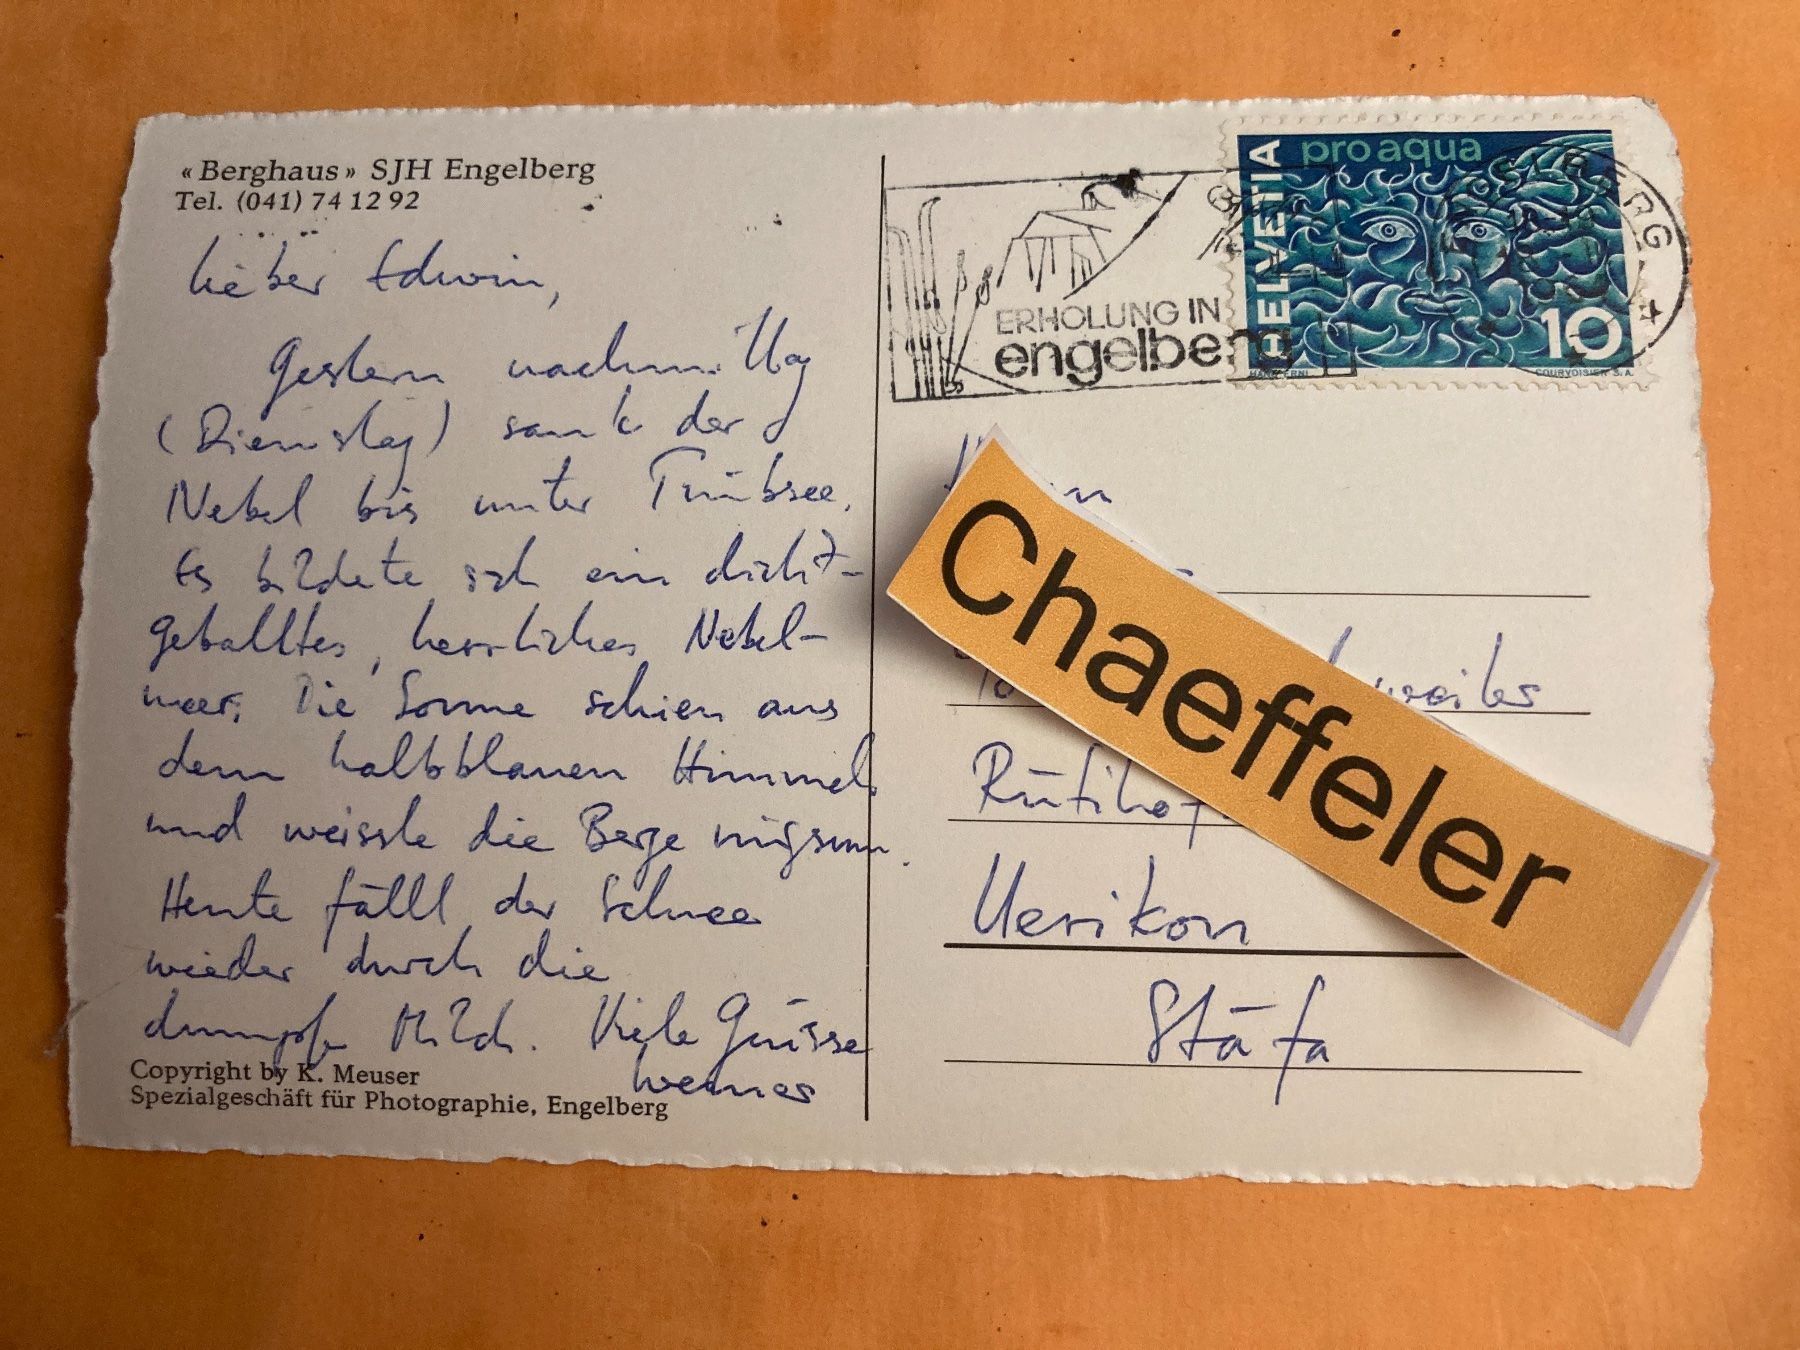 «Berghaus» SJH Engelberg
Tel. (041) 74 12 92
Lieber Edwin,
Gestern nachmittag
(Dienstag) sank der
Nebel bis unter Trübsee.
Es bildete sich ein dicht-
geballtes, herrliches Nebel-
meer. Die Sonne schien aus
dem halbblauen Himmel
und weisste die Berge ringsum.
Heute fällt der Schnee
wieder durch die
dumpfe Milch. Viele Grüsse
Werner
Copyright by K. Meuser
Spezialgeschäft für Photographie, Engelberg
ERHOLUNG IN
engelberg
HELVETIA
pro aqua
10
COURVOISIER S.A.
Chaeffeler
Rütihof
Uerikon
Stäfa